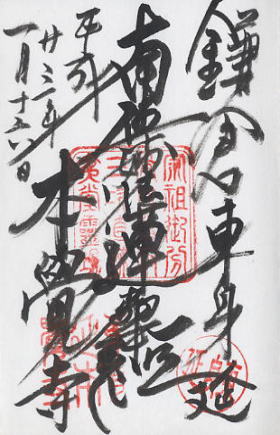 鎌倉 東身延
南無妙法蓮華経
本覺寺
平成
廿三年
一月十六日